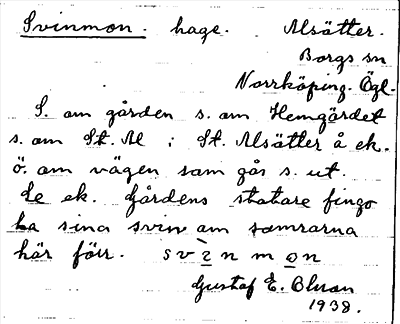 Svinmon. hage. Alsätter.
Borgs sn
Norrköping. Ögl.
S. om gården s. om Hemgärdet
s. om St. Al i St. Alsätter å ek.
Ö. om vägen som gås s. ut.
Se ek. Gårdens statare fingo
ha sina svin om somrarna
här förr. svìnmon
Gustaf E.
1938.